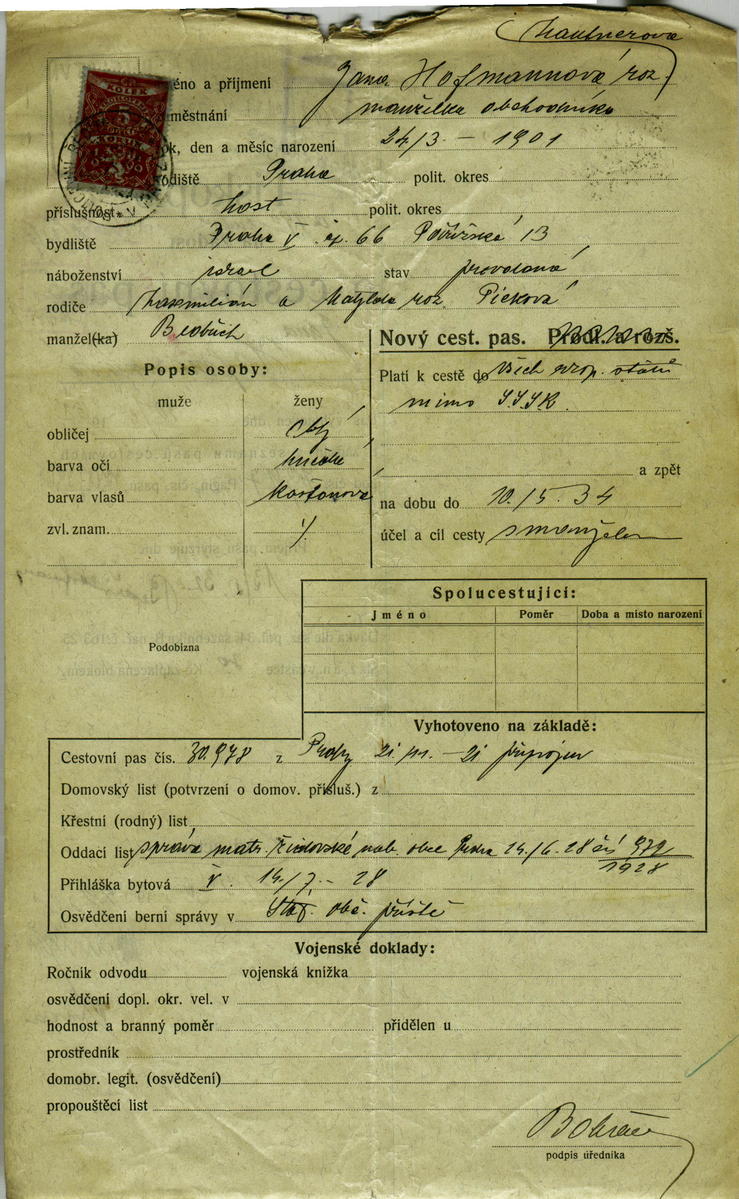 Lautnerova
jméno a příjmení Jana Hofmannová roz.
městnání manželka obchodníka
rok, den a měsíc narození 24/3. – 1901
rodiště Praha polit. okres
příslušnost host polit. okres
bydliště Praha V. čp. 66 Pořížská 13
náboženství israel stav provdaná
rodiče Maxmilián a Matylda roz. Picková
manžel(ka) Bedřich
Nový cest. pas. Prodl. a rozš.
Popis osoby:
Platí k cestě do všech evrop. států
muže ženy
mimo SSSR.
obličej oblý
barva očí hnědé
a zpět
barva vlasů kaštanová
na dobu do 10./5. 34
zvl. znam. ·/.
účel a cíl cesty s manželem
Spolucestující:
Jméno Poměr Doba a místo narození
Podobizna
Vyhotoveno na základě:
Cestovní pas čís. 30.978 z Prahy připojen
Domovský list (potvrzení o domov. přísluš.) z
Křestní (rodný) list
Oddací list správa matr. židovské nab. obce Praha 14./6. 28 čís 972
1928
Přihláška bytová V. 14/7. – 28
Osvědčení berní správy v obč. příště
Vojenské doklady:
Ročník odvodu vojenská knížka
osvědčení dopl. okr. vel. v
hodnost a branný poměr přidělen u
prostředník
domobr. legit. (osvědčení)
propouštěcí list
podpis úředníka